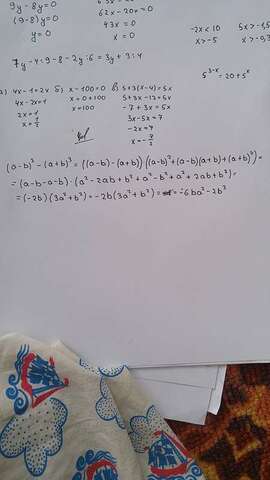 9y - 8y = 0
(9-8)y = 0
y = 0
62x - 20x = 0
43x = 0
x = 0
-7x < 10
x > -5
7y - 4 : 9 - 8 - 2y : 6 = 3y + 3 : 4
5^(3-x) = 20 + 5^x
4x - 1 = 2x
4x - 2x = 1
2x = 1
x = 1/2
б) x - 100 = 0
x = 0 + 100
x = 100
5 + 3(x - 4) = 5x
5 + 3x - 12 = 5x
-7 + 3x = 5x
3x - 5x = 7
-2x = 7
x = -7/2
(a-b)³ - (a+b)³ = ((a-b) - (a+b))((a-b)² + (a-b)(a+b) + (a+b)²) =
= (a-b-a-b)·(a² - 2ab + b² + a² - b² + a² + 2ab + b²) =
= (-2b)(3a² + b²) = -2b(3a² + b²) = = -6ba² - 2b³